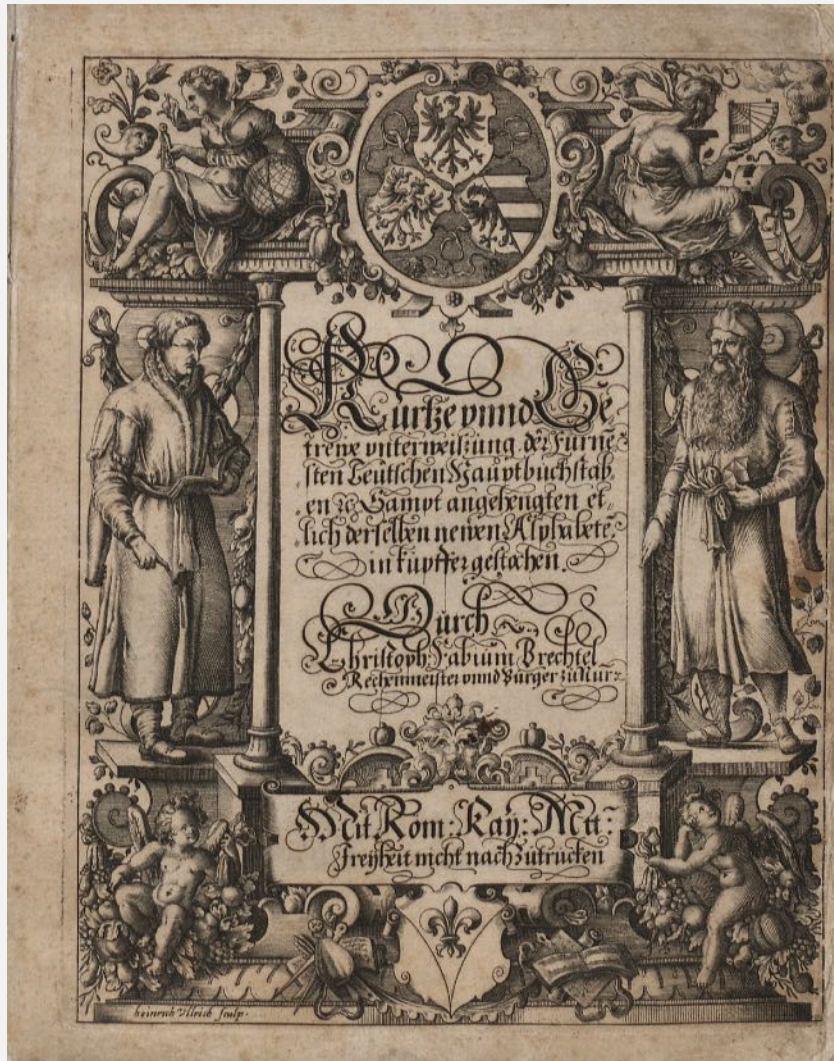 Kurtze vnnd Ge=
trewe vnterweisung der Fürne=
sten Teütschen Hauptbuchstab
en ꝛc Sampt angehengten et=
lich derselben newen Alphabete.
in kupffer gestochen.
Durch
Christoph Fabium Brechtel
Rechenmeister vnnd Bürger zu Nur:
Mit Rom: Kay: Mtt:
Freyheit nicht nachzutrucken
heinrich Vllrich sculp.